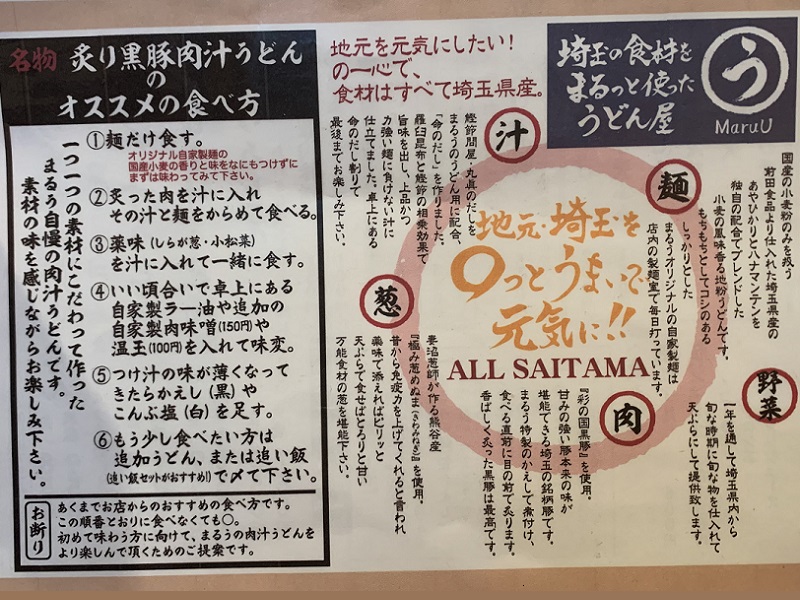 名物 炙り黒豚肉汁うどん
の
オススメの食べ方
①麺だけ食す。
オリジナル自家製麺の
国産小麦の香りと味をなにもつけずに
まずは味わってみて下さい。
②炙った肉を汁に入れ
その汁と麺をからめて食べる。
③薬味（しらが葱・小松菜）
を汁に入れて一緒に食す。
④いい頃合いで卓上にある
自家製ラー油や追加の
自家製肉味噌（150円）や
温玉（100円）を入れて味変。
⑤つけ汁の味が薄くなって
きたらかえし（黒）や
こんぶ塩（白）を足す。
⑥もう少し食べたい方は
追加うどん、または追い飯
（追い飯セットがおすすめ！）で〆て下さい。
一つ一つの素材にこだわって作った
まるう自慢の肉汁うどんです。
素材の味を感じながらお楽しみ下さい。
お断り
あくまでお店からのおすすめの食べ方です。
この順番とおりに食べなくても〇。
初めて味わう方に向けて、まるうの肉汁うどんを
より楽しんで頂くためのご提案です。
地元を元気にしたい！
の一心で、
食材はすべて埼玉県産。
埼玉の食材を
まるっと使った
うどん屋
う
MaruU
汁
鰹節問屋、丸眞のだしを
まるうのうどん用に配合、
「命のだし」を作りました。
羅臼昆布と鰹節の相乗効果で
旨味を出し、上品かつ
力強い麺に負けない汁に
仕立てました。卓上にある
命のだし割りで
最後までお楽しみ下さい。
麺
国産の小麦粉のみを扱う
前田食品より仕入れた埼玉県産の
あやひかりとハナマンテンを
独自の配合でブレンドした
小麦の風味香る地粉うどんです。
もちもちとしてコシのある
しっかりとした
まるうオリジナルの自家製麺は
店内の製麺室で毎日打っています。
地元・埼玉を
〇っとうまいで
元気に!!
ALL SAITAMA
葱
妻沼葱師が作る熊谷産
『極み葱めぬま（きわみねぎ）』を使用。
昔から免疫力を上げてくれると言われ
薬味で添えればピリッと
天ぷらで食せばとろりと甘い
万能食材の葱を堪能下さい。
肉
『彩の国黒豚』を使用。
甘みの強い豚本来の味が
堪能できる埼玉の銘柄豚です。
まるう特製のかえしで煮付け、
食べる直前に目の前で炙ります。
香ばしく炙った黒豚は最高です。
野菜
一年を通して埼玉県内から
旬な時期に旬な物を仕入れて
天ぷらにして提供致します。